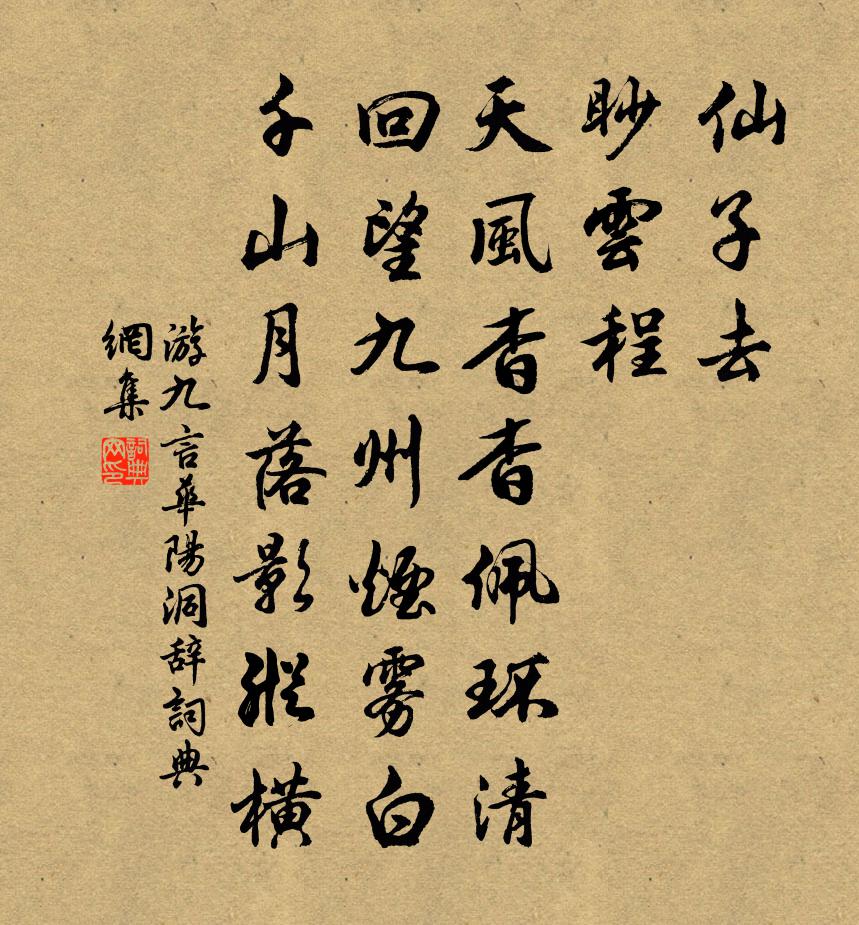 仙子去
眇雲程
天風杳杳佩環清
回望九州煙雾白
千山月落影縱橫
游九言華陽洞辞詞典
網集
詞典
网印